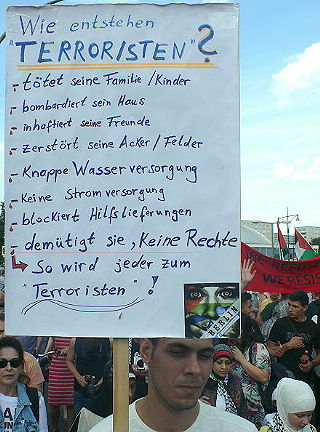 Wie entstehen
"TERRORISTEN"?
- tötet seine Familie/Kinder
- bombardiert sein Haus
- inhaftiert seine Freunde
- zerstört seine Äcker/Felder
- Knappe Wasserversorgung
- Keine Stromversorgung
- blockiert Hilfslieferungen
- demütigt sie, Keine Rechte
→ So wird jeder zum
"Terroristen"!
WE RESIS